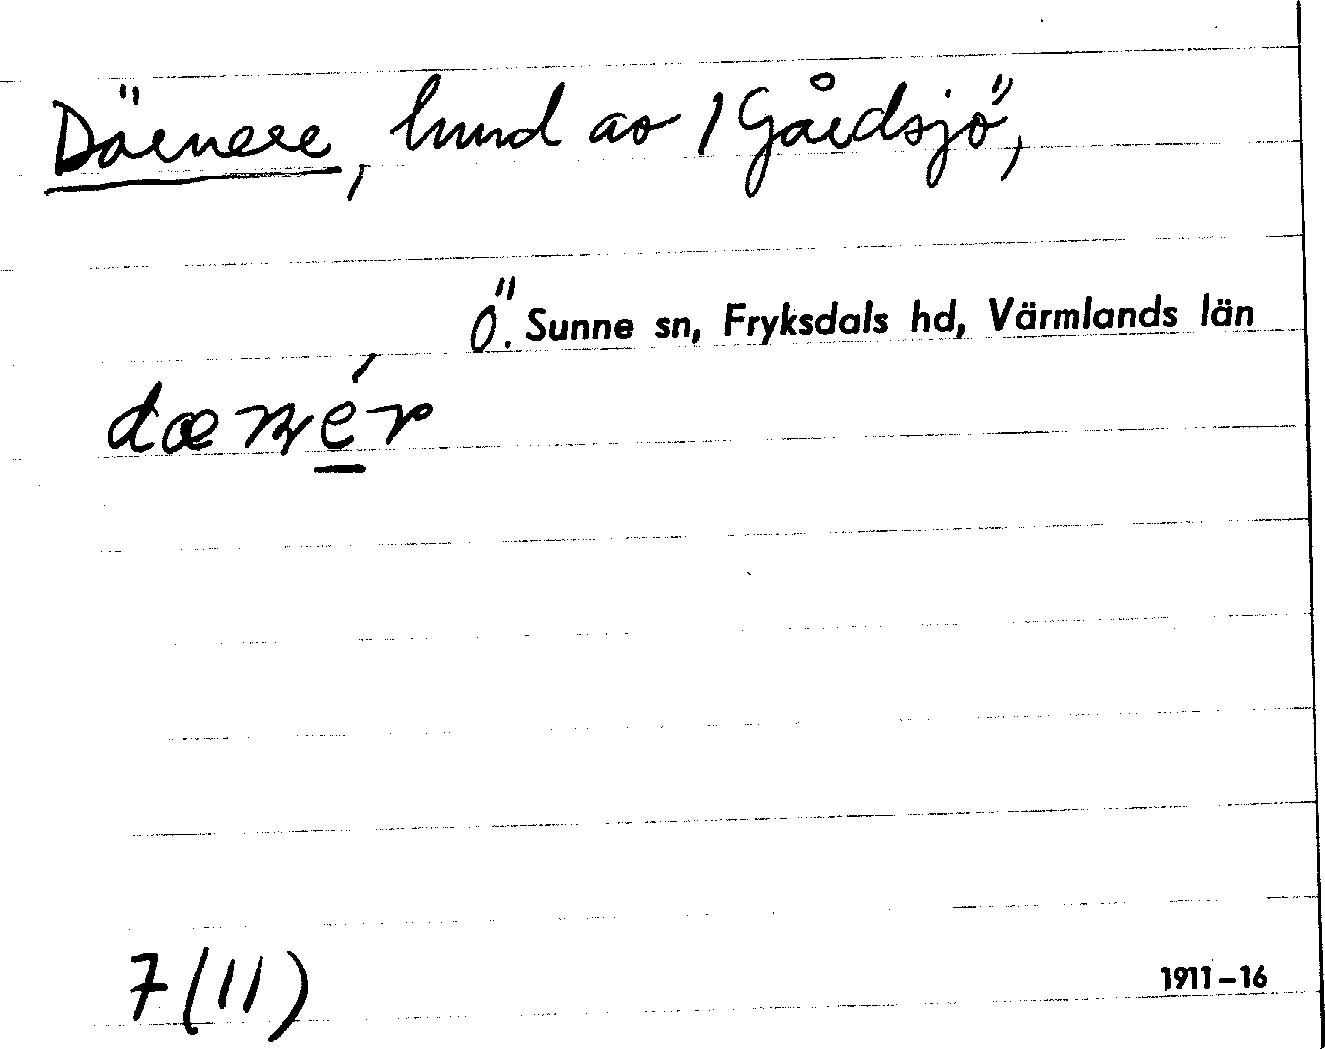 Därnere, hund av 1 Gårdsjö,
Ö. Sunne sn, Fryksdals hd, Värmlands län
7(11)
1911-16